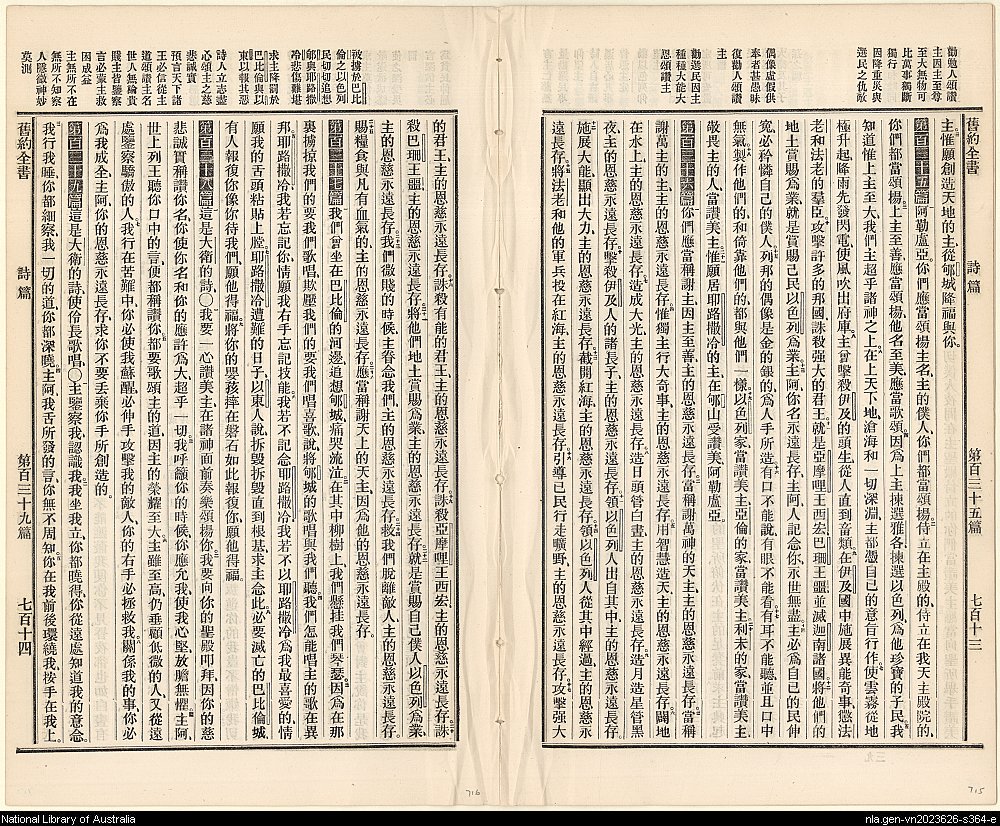 勸勉人頌讚
主因主至尊
至大無物可
比萬事獨斷
獨行
因降重災與
選民之仇敵
偶像虛假供
奉者甚愚昧
復勸人頌讚
主
勸選民因主
種種大能大
恩頌讚主
舊約全書 詩篇 第百三十五篇 七百十三
主惟願創造天地的主從郇城降福與你
第百三十五篇 阿勒盧亞你們應當頌揚主名主的僕人你們都當頌揚侍立在主殿的侍立在我天主殿院的
你們都當頌揚上主至善應當頌揚他名至美應當歌頌因爲上主揀選雅各揀選以色列爲他珍寶的子民我
知道惟上主至大我們主超乎諸神之上在上天下地滄海和一切深淵主都憑自己的意旨行作使雲霧從地
極升起降雨先發閃電使風吹出府庫主曾擊殺伊及的頭生從人直到畜類在伊及國中施展異能奇事懲法
老和法老的羣臣攻擊許多的邦國誅殺强大的君王就是亞摩哩王西宏巴珊王噩並滅迦南諸國將他們的
地土賞賜爲業就是賞賜己民以色列爲業主阿你名永遠長存主阿人記念你永世無盡主必爲自己的民伸
冤必矜憐自己的僕人列邦的偶像是金的銀的爲人手所造有口不能說有眼不能看有耳不能聽並且口中
無氣製作他們的和倚靠他們的都與他們一樣以色列家當讚美主亞倫的家當讚美主利未的家當讚美主
敬畏主的人當讚美主惟願居耶路撒冷的主在郇山受讚美阿勒盧亞
第百三十六篇 你們應當稱謝主因主至善主的恩慈永遠長存當稱謝萬神的天主主的恩慈永遠長存當稱
謝萬主的主主的恩慈永遠長存惟獨主行大奇事主的恩慈永遠長存用智慧造天主的恩慈永遠長存闢地
在水上主的恩慈永遠長存造成大光主的恩慈永遠長存造日頭管白晝主的恩慈永遠長存造月造星管黑
夜主的恩慈永遠長存擊殺伊及人的諸長子主的恩慈永遠長存領以色列人出自其中主的恩慈永遠長存
施展大能顯出大力主的恩慈永遠長存截開紅海主的恩慈永遠長存領以色列人從其中經過主的恩慈永
遠長存將法老和他的軍兵投在紅海主的恩慈永遠長存引導己民行走曠野主的恩慈永遠長存攻擊强大
被擄於巴比
倫之以色列
民切切追想
郇與耶路撒
冷悲傷難堪
求主降罰於
巴比倫與以
東以報其惡
詩人立志盡
心頌主之慈
悲誠實
預言天下諸
王必信從主
道頌讚主名
世人無論貴
賤主皆鑒察
言必蒙主救
困成益
主無所不在
無所不知察
人隱微神妙
莫測
的君王主的恩慈永遠長存誅殺有能的君王主的恩慈永遠長存誅殺亞摩哩王西宏主的恩慈永遠長存誅
殺巴珊王噩主的恩慈永遠長存將他們地土賞賜爲業主的恩慈永遠長存就是賞賜自己僕人以色列爲業
主的恩慈永遠長存我們微賤的時候主眷念我們主的恩慈永遠長存救我們脫離敵人主的恩慈永遠長存
賜糧食與凡有血氣的主的恩慈永遠長存應當稱謝天上的天主因爲他的恩慈永遠長存
第百三十七篇 我們曾坐在巴比倫的河邊追想郇城痛哭流泣在其中柳樹上我們懸挂我們琴瑟因爲在那
裏擄掠我們的要我們歌唱欺壓我們的要我們唱喜歌說將郇城的歌唱與我們聽我們怎能唱主的歌在異
邦耶路撒冷我若忘記你情願我右手忘記技能我若不記念耶路撒冷我若不以耶路撒冷爲我最喜愛的情
願我的舌頭粘貼上膛耶路撒冷遭難的日子以東人說拆毀拆毀直到根基求主念此必要滅亡的巴比倫城
有人報復你像你待我們願他得福將你的嬰孩摔在磐石如此報復你願他得福
第百三十八篇 這是大衛的詩〇我要一心讚美主在諸神面前奏樂頌揚你我要向你的聖殿叩拜因你的慈
悲誠實稱讚你名你使你名和你的應許爲大超乎一切我呼籲你的時候你應允我使我心堅放膽無懼主阿
世上列王聽你口中的言便都稱讚你都要歌頌主的道因主的榮耀至大主雖至高仍垂顧低微的人又從遠
處鑒察驕傲的人我行在苦難中你必使我蘇醒必伸手攻擊我的敵人你的右手必拯救我關係我的事你必
爲我成全主阿你的恩慈永遠長存求你不要丟棄你手所創造的
第百三十九篇 這是大衛的詩使伶長歌唱〇主鑒察我認識我我坐我立你都曉得你從遠處知道我的意念
我行我睡你都細察我一切的道你都深曉主阿我舌所發的言你無不周知你在我前後環繞我按手在我上
舊約全書 詩篇 第百三十九篇 七百十四
716
715
National Library of Australia
nla.gen-vn2023626-s364-e